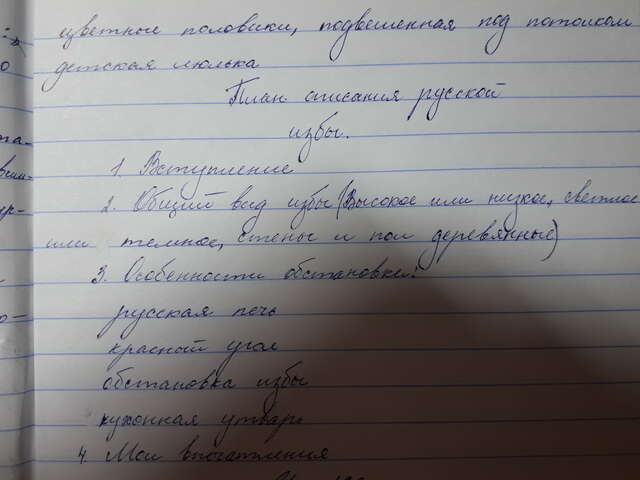 цветные половики, подвешенная под потолком
детская люлька
План описания русской
избы.
1. Вступление
2. Общий вид избы (Высокое или низкое, светлое
или темное, стены и пол деревянные)
3. Особенности обстановки:
русская печь
красный угол
обстановка избы
кухонная утварь
4. Мои впечатления